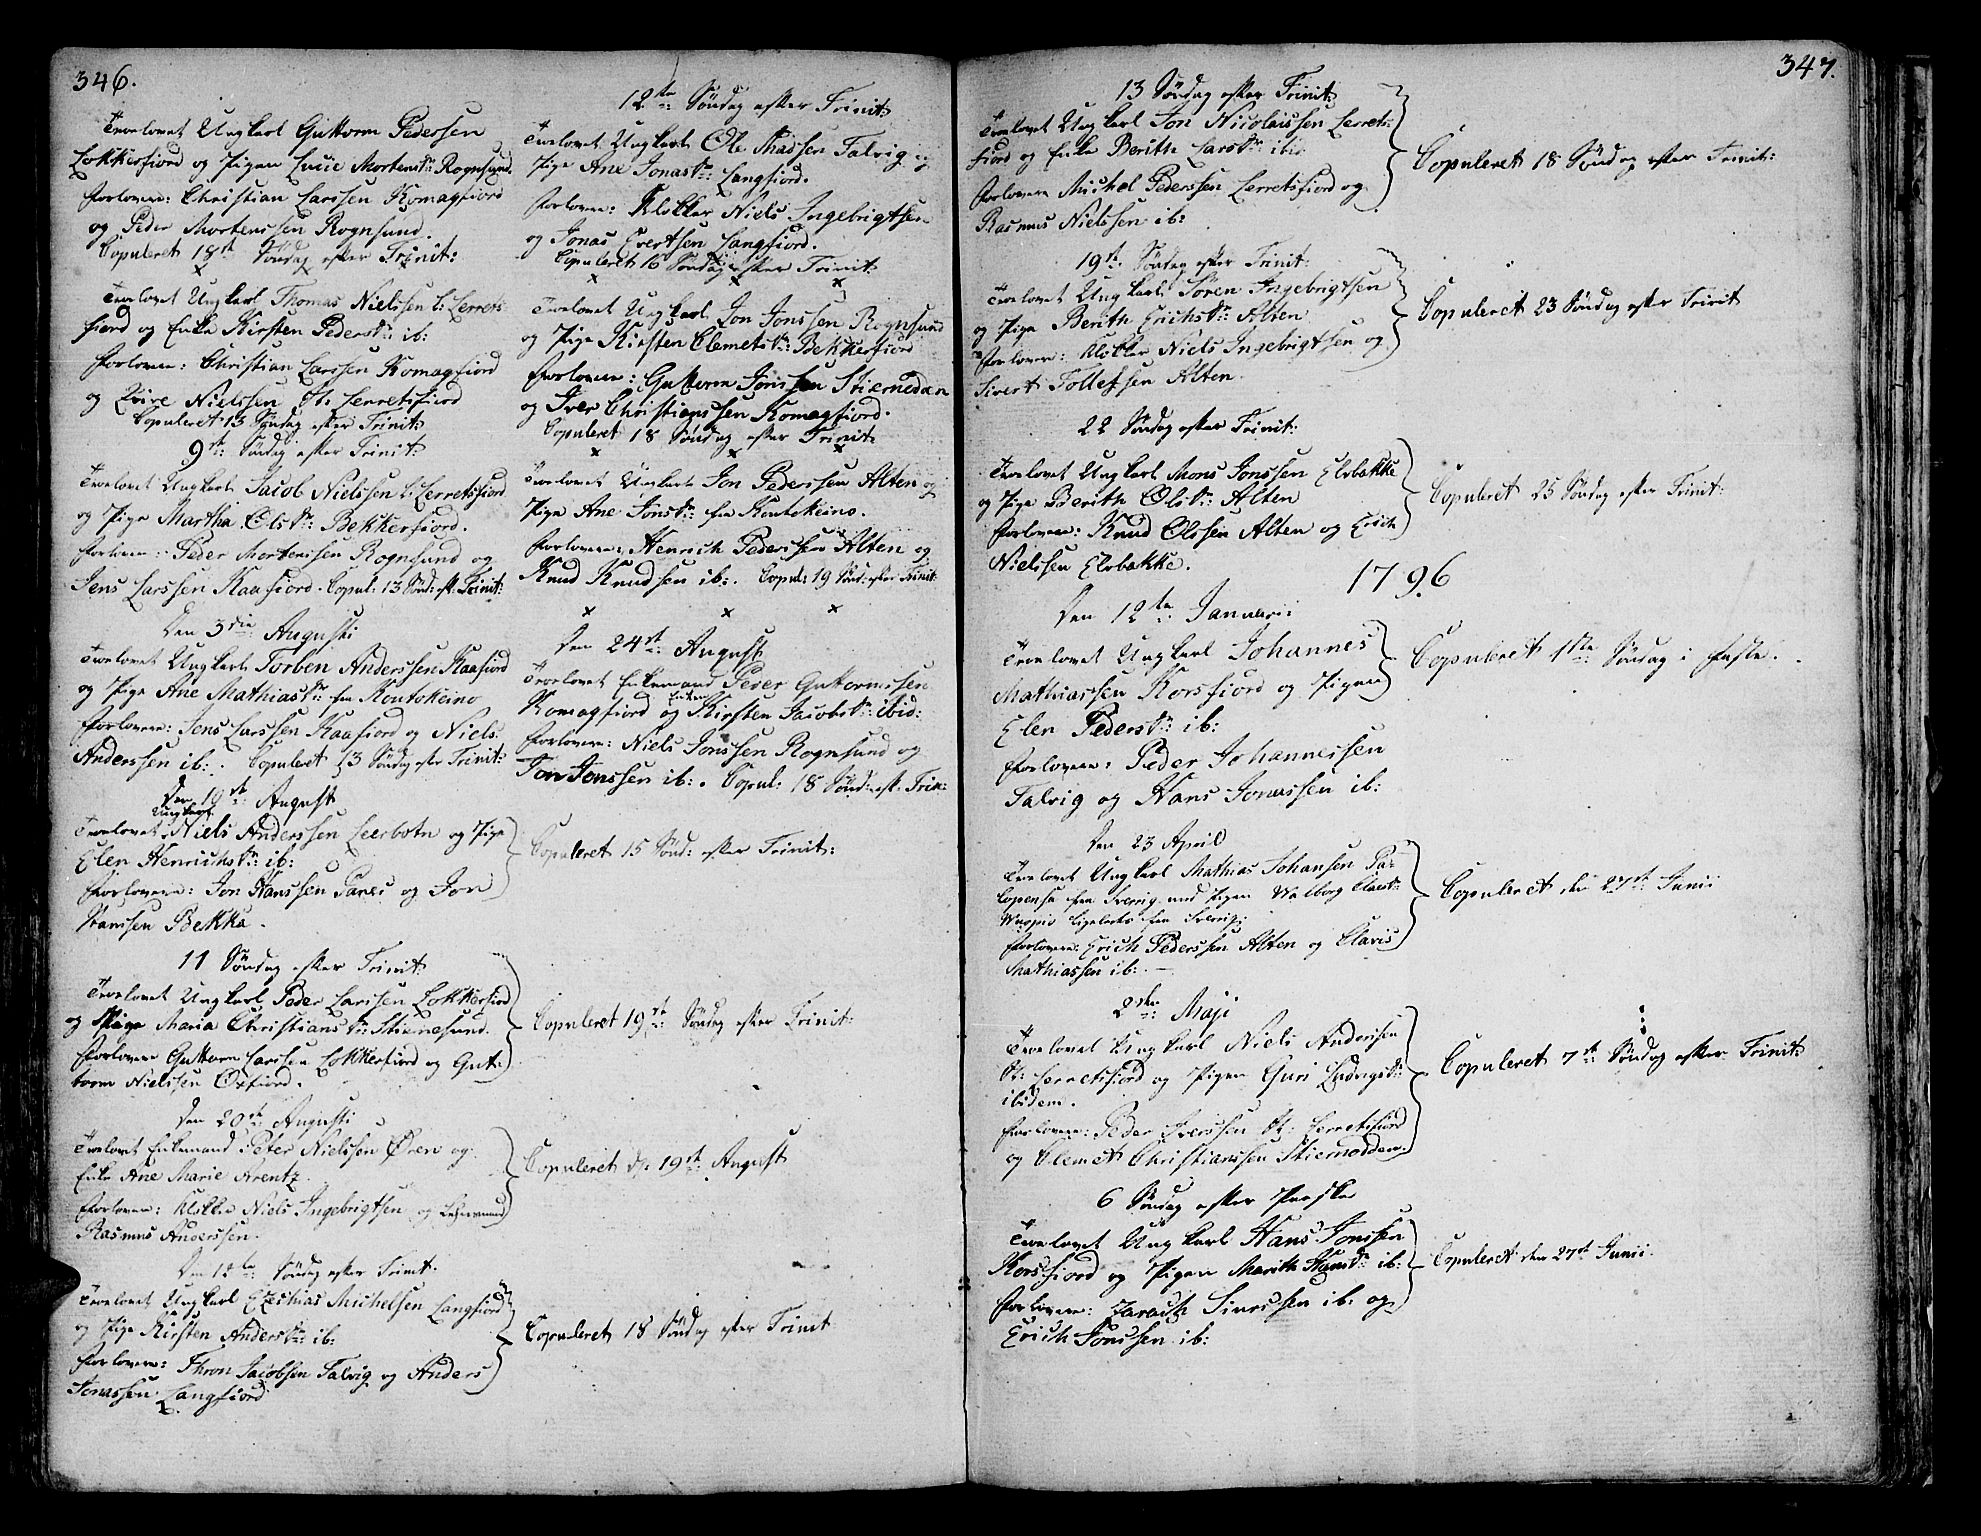 346.
Trolovet Ungkarl Guttorm Pedersen
Lokkerfiord og Pigen Lucie Mortensdr: Rognsund.
Forlovere: Christian Larssen Komagfiord
og Peder Mortenssen Rognsund.
Copuleret 18de Søndag efter Trinit:
Trolovet Ungkarl Thomas Nielssen L: Lerrets-
fiord og Enke Kirsten Pedersdr: ib:
Forlovere: Christian Larssen Komagfiord
og Nielssen St: Lerretsfiord
Copuleret 13 Søndag efter Trinit:
9de: Søndag efter Trinit:
Trolovet Ungkarl Jacob Nielssen L: Lerretsfiord
og Pige Martha Olsdr: Bekkerfiord.
Forlovere: Peder Mortenssen Rognsund og
Jens Larssen Kaafiord. Copul: 13 Sønd: eft: Trinit:
Den 3die Augusti
Trolovet Ungkarl Torben Anderssen Kaafiord
og Pige Ane Mathiasdr: fra Koutokeino
Forlovere: Jens Larssen Kaafiord og Niels
Anderssen ib: Copuleret 13 Søndag efter Trinit:
Den 19de: August
Ungkarl
Trolovet Niels Anderssen Leerbotn og Pige
Elen Henrichsdr: ib:
Forlovere: Jon Hanssen Panes og Jon
Hanssen Bekka.
Copuleret 15 Sønd: efter Trinit:
11 Søndag efter Trinit:
Trolovet Ungkarl Peder Larssen Lokkerfiord
og Pige Maria Christiansdr: Stiernesund.
Forlovere Guttorm Larssen Lokkerfiord og Gut-
torm Nielssen Oxfiord.
Copuleret 19de: Søndag efter Trinit:
Den 20de Augusti
Trolovet Enkemand Peter Nielssen Øren og
Enke Ane Marie Arentz.
Forlovere: Klokker Niels Ingebrigtsen og
Rasmus Anderssen.
Copuleret d: 19de August
Den 12te: Søndag efter Trinit:
Trolovet Ungkarl Ezechias Michelsen Langfiord
og Pige Kirsten Andersdr: ib:
Forlovere: Thron Jacobsen Talvig og Anders
Jonassen Langfiord
Copuleret 18 Søndag efter Trinit
12te: Søndag efter Trinit:
Trolovet Ungkarl Ole Madsen Talvig og
Pige Ane Jonasdr: Langfiord.
Forlovere: Klokker Niels Ingebrigtsen
og Jonas Evertsen Langfiord.
Copuleret 16 Søndag efter Trinit:
Trolovet Ungkarl Jon Jonssen Rognsund
og Pige Kirsten Clemetsdr: Bekkerfiord
Forlovere: Guttorm Jonssen Stiernedan
og Iver Christianssen Komagfiord.
Copuleret 18 Søndag efter Trinit:
Trolovet Ungkarl Jon Pederssen Alten og
Pige Ane Jonsdr: fra Koutokeino.
Forlovere: Henrich Pederssen Alten og
Knud Knudsen ib:. Copul: 19 Sønd: efter Trinit:
Den 24de August
Trolovet Enkemand Peder Guttormssen
Komagfiord og Enken Kirsten Jacobsdr: ibid:
Forlovere: Niels Jonssen Rognsund og
Jon Jonssen ib:. Copul: 18 Sønd: eft: Trin:
347.
13 Søndag efter Trinit:
Trolovet Ungkarl Jon Nicolaissen Lerrets-
fiord og Enke Berith Larsdr: ib:
Forlovere Michel Pederssen Lerretsfiord og
Rasmus Nielssen ib:
Copuleret 18 Søndag efter Trinit:
19de: Søndag efter Trinit:
Trolovet Ungkarl Søren Ingebrigtsen
og Pige Berith Erichsdr: Alten
Forlovere: Klokker Niels Ingebrigtsen og
Sivert Tollefsen Alten.
Copuleret 23 Søndag efter Trinit
22 Søndag efter Trinit:
Trolovet Ungkarl Mons Jonssen Elvbakke
og Pige Berith Olsdr: Alten
Forlovere: Knud Olssen Alten og Erich
Nielssen Elvbakke.
Copuleret 25 Søndag efter Trinit:
1796
Den 12te: Januarii
Trolovet Ungkarl Johannes
Mathiassen Korsfiord og Pigen
Elen Pedersdr: ib:
Forlovere: Peder Johannessen
Talvig og Hans Jonassen ib:
Copuleret 1ste: Søndag i Faste.
Den 23 April
Trolovet Ungkarl Mathias Johansen
fra Sverrig med Pigen Walborg
ligeledes fra Sverrig:
Forlovere: Erich Pederssen Alten og Clavis
Mathiassen ib:
Copuleret den 27de Junii
2den: Maji
Trolovet Ungkarl Niels Anderssen
St: Lerretsfiord og Pigen Guri Ludvigsdr:
ibidem.
Forlovere: Peder Iverssen St: Lerretsfiord
og Clemet Christianssen Stiernodden.
Copuleret 7de: Søndag efter Trinit:
6 Søndag efter Paaske
Trolovet Ungkarl Hans Jonssen
Korsfiord og Pigen Marith Hansdr: ib:
Forlovere: Sivertssen ib: og
Erich Jonssen ib:
Copuleret den 27de Junii